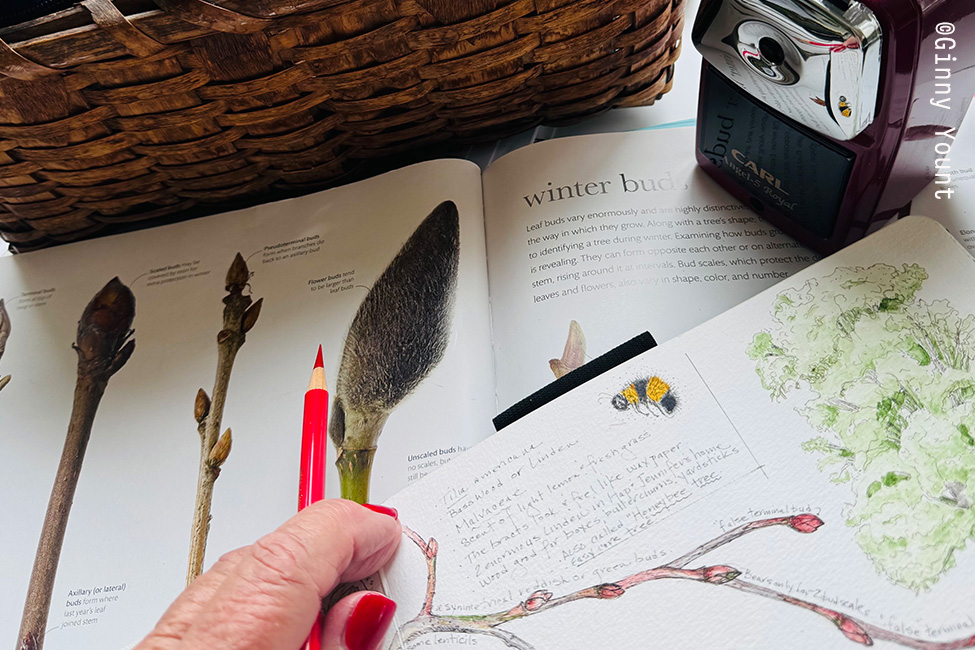 ©Ginny Yount
Scaled buds may be
covered by resin for
extra protection in winter
Pseudoterminal buds
form when branches die
back to an axillary bud
Flower buds tend
to be larger than
leaf buds
Axillary (or lateral)
buds form where
last year's leaf
joined stem
winter buds
Leaf buds vary enormously and are highly distinctive
the way in which they grow. Along with a tree's shape,
to identifying a tree during winter. Examining how buds
is revealing. They can form opposite each other or on
stem, rising around it at intervals. Bud scales, which protect the
leaves and flowers, also vary in shape, color, and number
Unscaled buds
no scales, but
still be
CARL
Angel-5 Royal
bud
Tilia americana
Basswood or Linden
Malvaceae
Scent of light lemon & fresh grass
The bracts look & feel like wax paper
2 enormous Linden in Hapi & Jennifer's home
Wood good for boxes, butter churns, yardsticks
Also called "Honeybee tree"
Easy care tree
"false terminal bud"
reddish or green buds
Bears only 1 or 2 bud scales
"false" terminal
lenticils